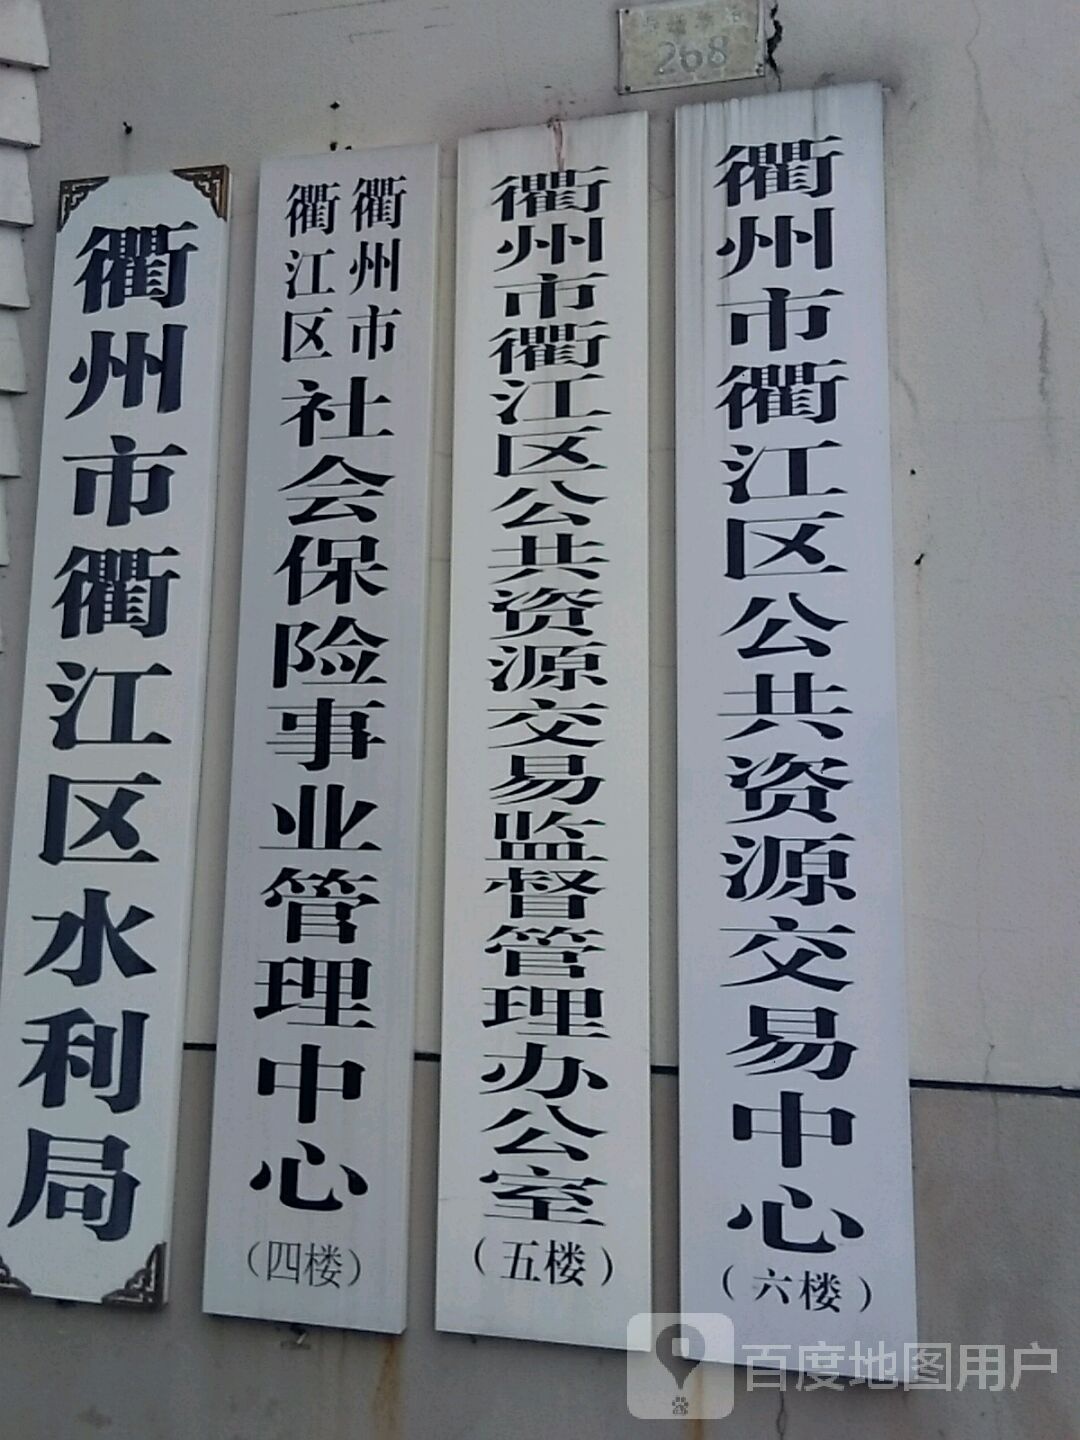 268
衢州市衢江区水利局
衢州市
衢江区
社会保险事业管理中心
（四楼）
衢州市衢江区公共资源交易监督管理办公室
（五楼）
衢州市衢江区公共资源交易中心
（六楼）
百度地图用户